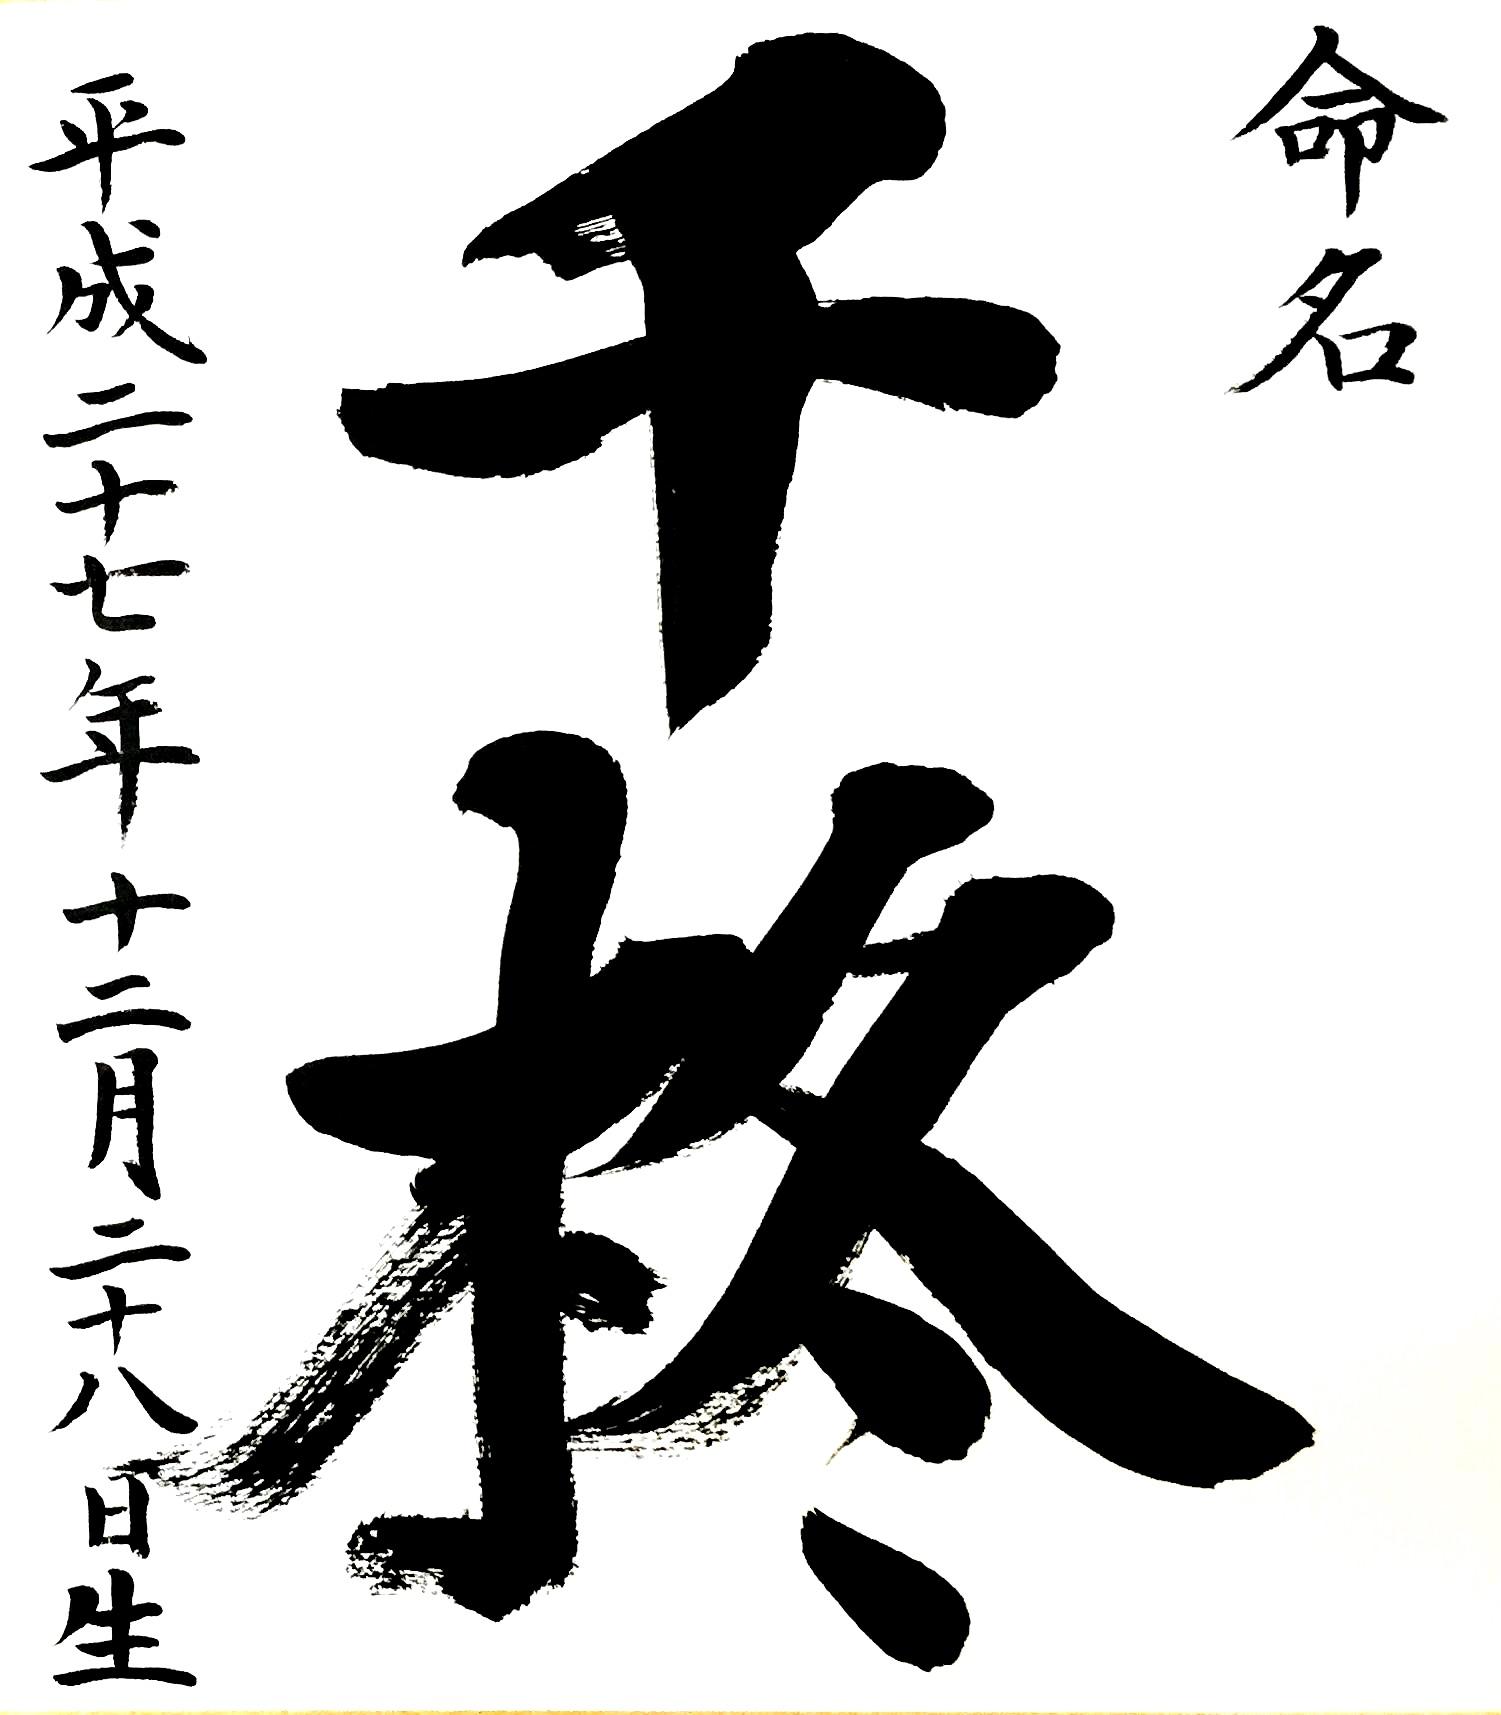 命名
千柊
平成二十七年十二月二十八日生